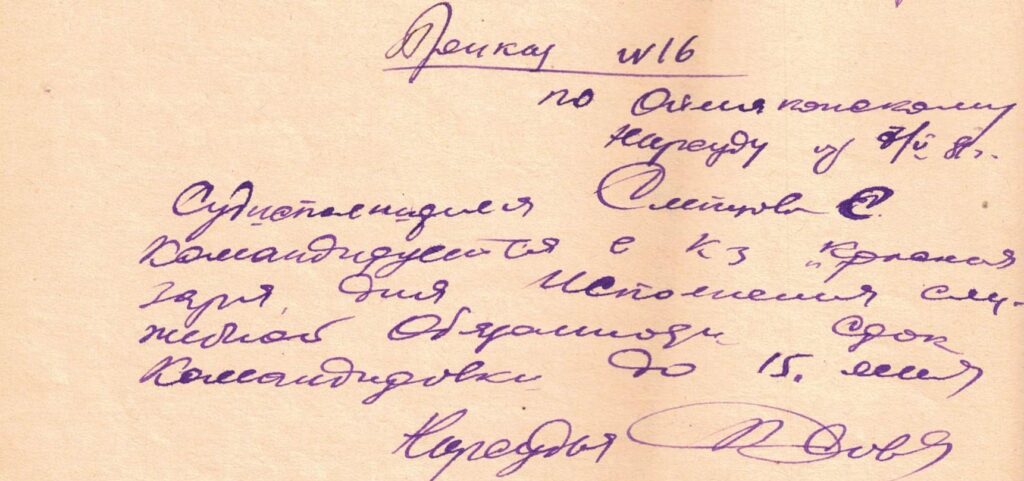 Приказ №16
по Оймяконскому
Нарсуду от
Судисполнителя Слепцова С.
командируется в кз „Красная
заря, для Исполнения слу-
жебной Обязанности Срок
командировки до 15. июня
Нарсудья